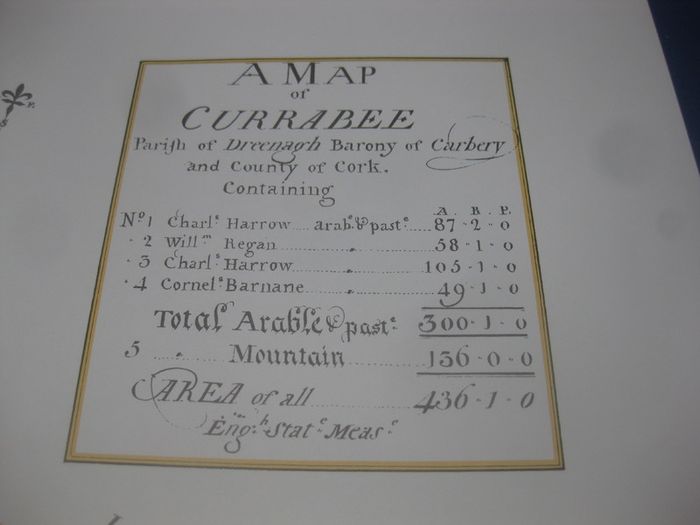 A MAP
of
CURRABEE
Parish of Dreenagh Barony of Carbery
and County of Cork.
Containing
A. R. P.
No. 1 Charls. Harrow .... arabe. & paste. ..... 87 - 2 - 0
" 2 Willm. Regan ........ " ........ 58 - 1 - 0
" 3 Charls. Harrow ........ " ........ 105 - 1 - 0
" 4 Cornels. Barnane ........ " ........ 49 - 1 - 0
Total Arable & paste. 300 - 1 - 0
5 ..... " ..... Mountain ........ 136 - 0 - 0
AREA of all ........ 436 - 1 - 0
Engh. State. Mease.